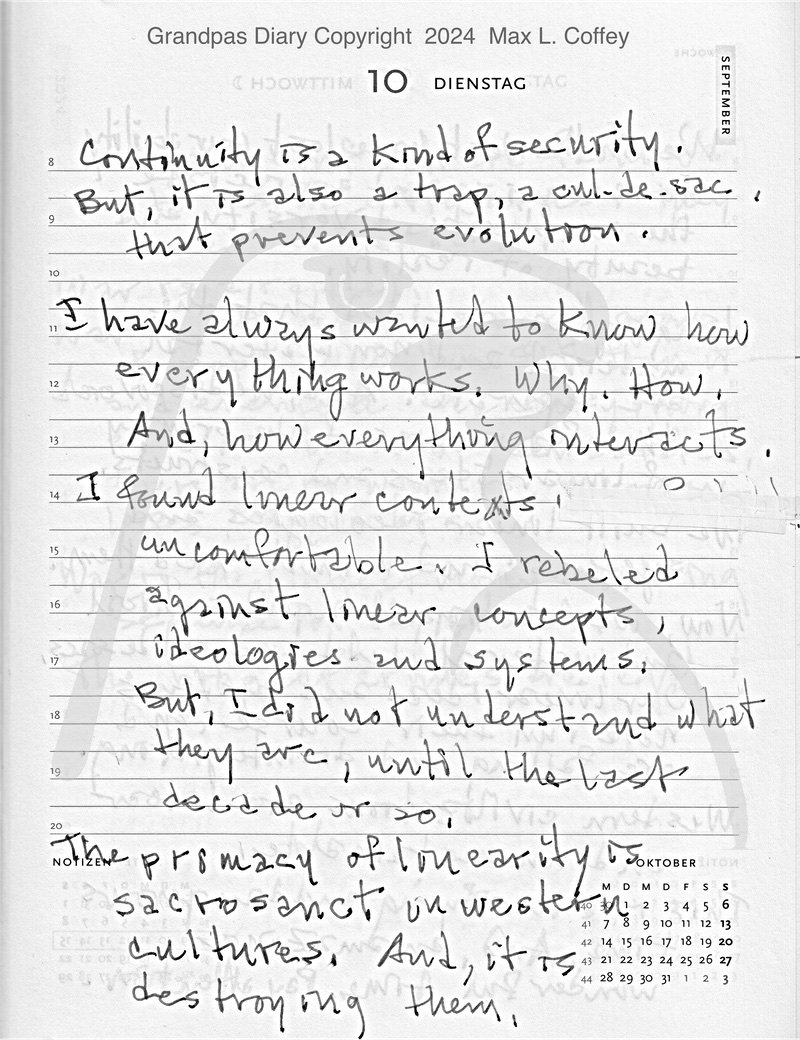 Grandpas Diary Copyright 2024 Max L. Coffey
10 DIENSTAG
SEPTEMBER
8 Continuity is a kind of security.
But, it is also a trap, a cul-de-sac,
9 that prevents evolution.
10
11 I have always wanted to know how
12 everything works. Why. How.
13 And, how everything interacts.
14 I found linear contexts
15 uncomfortable. I rebeled
16 against linear concepts,
17 ideologies and systems.
18 But, I did not understand what
they are, until the last
19 decade or so.
20
The primacy of linearity is
NOTIZEN
sacrosanct in western
cultures. And, it is
destroying them.
OKTOBER
M D M D F S S
40 30 1 2 3 4 5 6
41 7 8 9 10 11 12 13
42 14 15 16 17 18 19 20
43 21 22 23 24 25 26 27
44 28 29 30 31 1 2 3